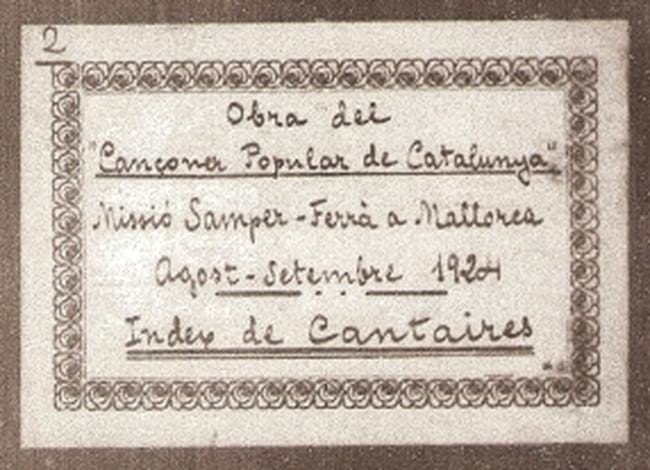 2
Obra del
"Cançoner Popular de Catalunya"
Missió Samper-Ferrà a Mallorca
Agost-Setembre 1924
Index de Cantaires